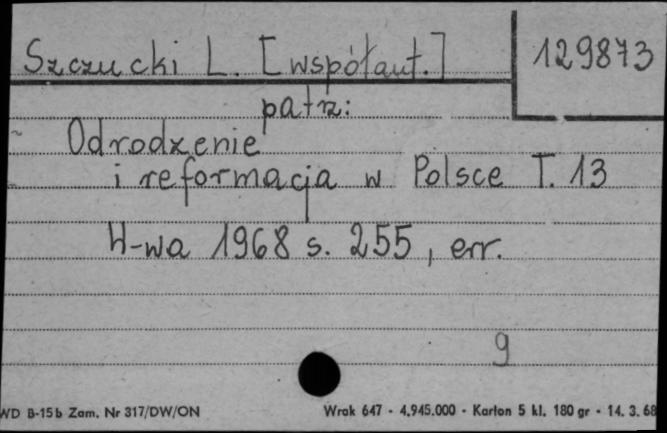 Szczucki L. [współaut.] 129873
patrz:
Odrodzenie
i reformacja w Polsce T. 13
W-wa 1968 s. 255, err.
9
WD B-15b Zam. Nr 317/DW/ON Wrak 647 - 4.945.000 - Karton 5 kl. 180 gr - 14. 3. 68